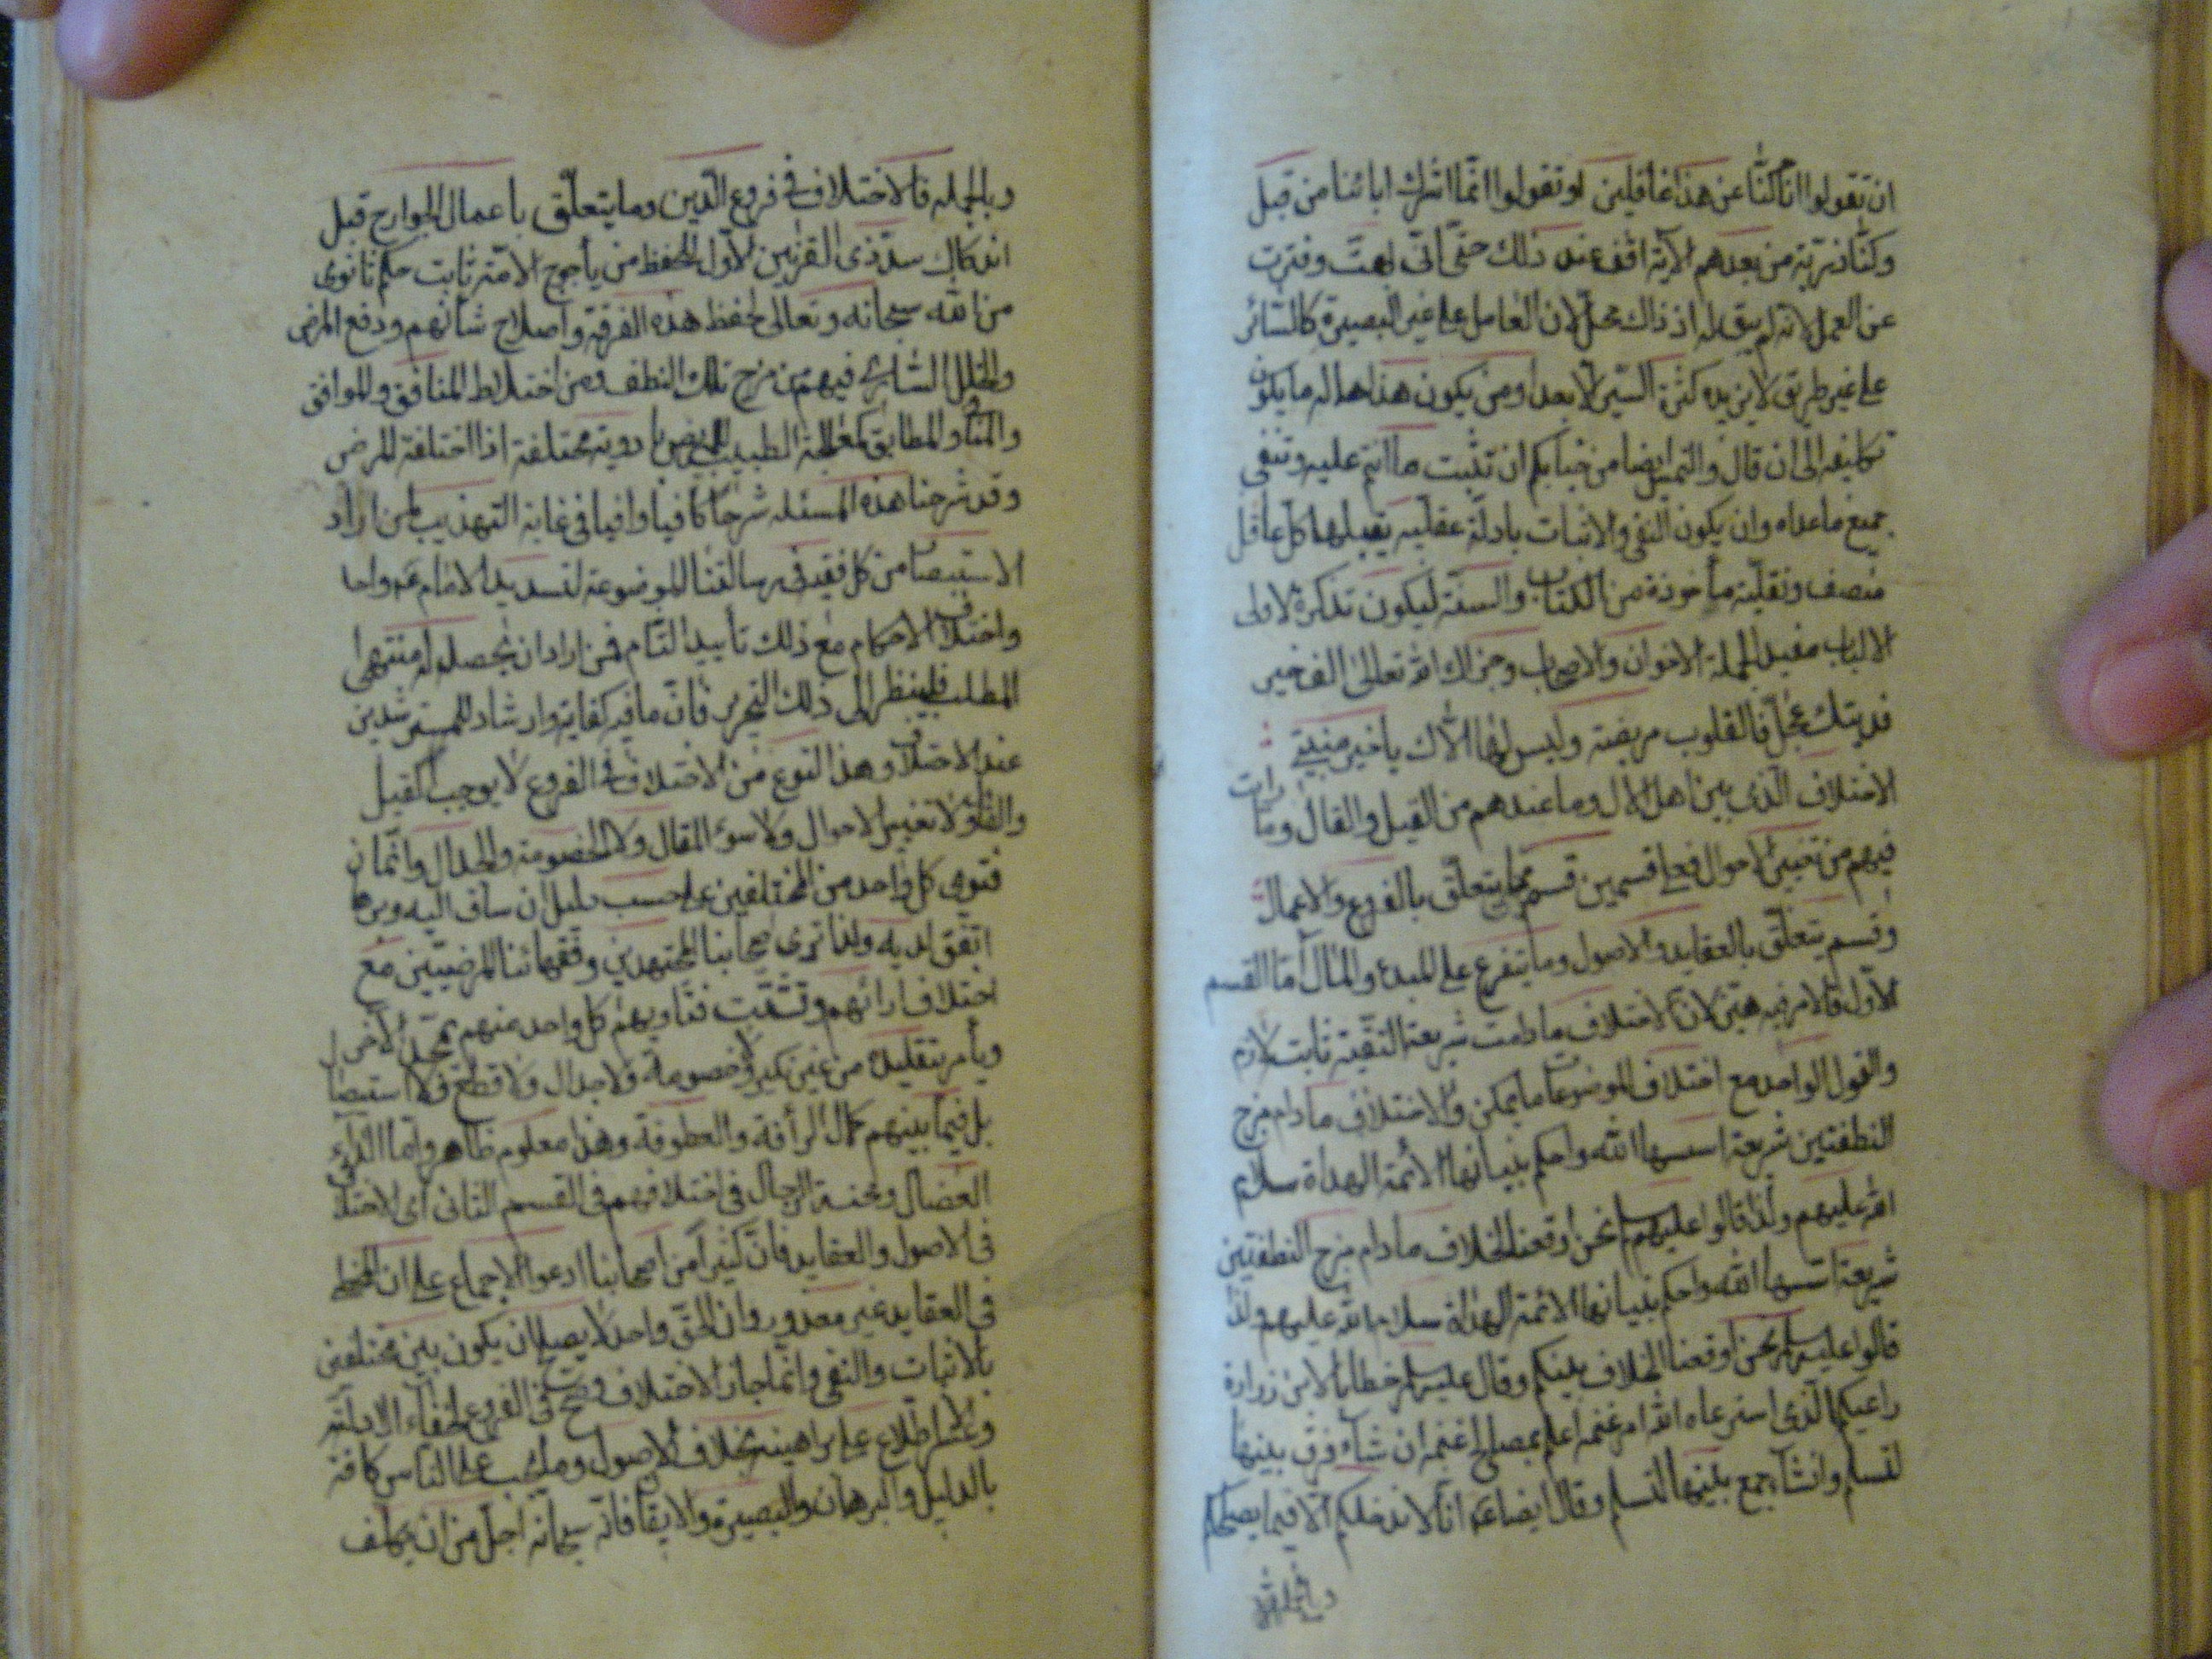 ان تقولوا انا كنّا عن هذا غافلين او تقولوا انّما اشرك ابائنا من قبل
وكنّا ذريّة من بعدهم الآية اقف عند ذلك حتّى انّى بهتّ وفترت
عن العمل لانه لم يبق له اذ ذاك محلّ لان العامل على غير البصيرة كالسّائر
على غير طريق لا يزيده كثرة السّير الّا بعدا ومن يكون هذا حاله ما يكون
تكليفه الى ان قال والتمس ايضا من جنابكم ان تثبت ما انتم عليه وتنفى
جميع ما عداه وان يكون النفى والاثبات بادلّة عقليّه يقبلها كلّ عاقل
منصف ونقليّة مأخوذة من الكتاب والسنّة ليكون تذكرة لاولى
الالباب مفيد لجملة الاخوان والاصحاب وجزاك الله تعالى الف خير
فديتك عجّل فالقلوب مريضة وليس لها الّاك يا خير
الاختلاف الّذى بين اهل الال وما عندهم من القيل والقال وما رات
فيهم من تغيير الاحوال فعلى قسمين قسم ممّا يتعلّق بالفروع والاعمال
وقسم يتعلّق بالعقايد والاصول وما يتفرع على المبدء والمآل أمّا القسم
الاوّل فالامر فيه هيّن لانّ الاختلاف ما دامت شريعة التقيّة ثابت لازم
والقول الواحد مع اختلاف الموضوعات ما يمكن والاختلاف ما دام مزج
النطفتين شريعة اسسها الله واحكم بنيانها الأئمّة الهداة سلام
الله عليهم ولذا قالوا عليهم السلم نحن اوقعنا الخلاف ما دام مزج النطفتين
شريعة اسّسها الله واحكم بنيانها الائمّة الهداة سلام الله عليهم ولذا
قالوا عليهم السلم نحن اوقعنا الخلاف بينكم وقال عليه السلم خطابا لابن زرارة
راعيكم الّذى استرعاه الله امر غنمه اعلم بمصالح غنمه ان شاء فرق بينها
لتسلم وانشاء جمع بينها لتسلم وقال ايضا عم انّا لا ندخلكم الّا فيما يصلحكم
وبالجمله
وبالجمله فالاختلاف فى فروع الدّين وما يتعلّق باعمال الجوارح قبل
سدّ ذى القرنين الاوّل لحفظ من يأجوج الامّة ثابت حكم ثانوى
من الله سبحانه وتعالى لحفظ هذه الفرقة واصلاح شأنهم ودفع المرض
والخلل السّارى فيهم من مزج تلك النطف ومن اختلاط المنافق والموافق
والمطابق كمعالجة الطبيب للمريض بادوية مختلفة اذا اختلفة المرض
وقد شرحنا هذه المسئله شرحا كافيا وافيا فى غاية التهذيب لمن اراد
الاستبصار من كل فقيه فى رسالتنا الموضوعة لتسديد الامام عم واحد
واختلاف الاحكام مع ذلك تأييد التّام فمن اراد ان يحصله منتهى
المطلب فلينظر الى ذلك التحرير فانّ ما فيه كفاية وارشاد للمسترشدين
عند الاختلاف وهذا النوع من الاختلاف فى الفروع لا يوجب القيل
والقال ولا تغيير الاحوال ولا سوء المقال ولا الخصومة والجدال وانّما
فتوى كل واحد من المختلفين على حسب دليل ان ساق اليه وبرهان
اتّفق لديه ولذا ترى اصحابنا المجتهدين وفقهائنا المرضيّين مع
اختلاف ارائهم وتشتّت فتاويهم كل واحد منهم يمجّد الاخر
ويأمر بتقليده من غير نكير ولا خصومة ولا جدال ولا قطع ولا
بل فيما بينهم كمال الرأفة والعطوفة وهذا معلوم ظاهر وامّا الدّاء
العضال ومحنة الرجال فى اختلافهم فى القسم الثانى اى الاختلاف
فى الاصول والعقايد فانّ كثيرا من اصحابنا ادعوا الاجماع على ان المخطئ
فى العقايد غير معذور وان الحق واحد لا يصلح ان يكون بين مختلفين
بالاثبات والنفى وانّما جاز الاختلاف وصحّ فى الفروع لخفاء الادلّة
وعسر الاطّلاع على براهينه بخلاف الاصول وما يجب على النّاس كافة
بالدليل والبرهان والبصيرة والايقان فانّه سبحانه اجلّ من ان يكلّف